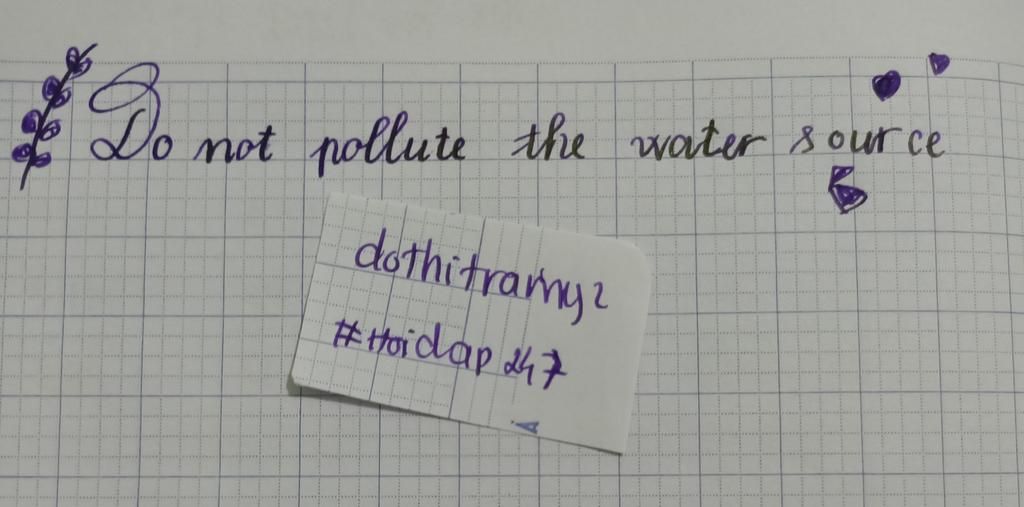 Do not pollute the water source
dothitramy2
#Hoidap 247